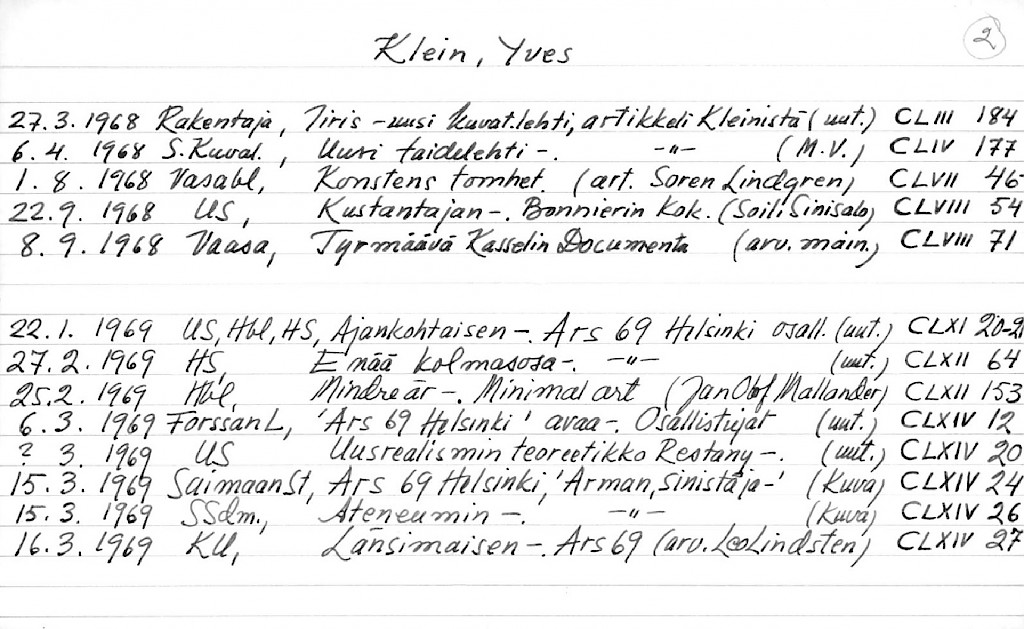 2
Klein, Yves
27.3.1968 Rakentaja, Iiris - uusi kuvat.lehti, artikkeli Kleinistä (uut.) CLIII 184
6.4. 1968 S.Kuval., Uusi taidelehti -. -"- (M.V.) CLIV 177
1.8.1968 Vasabl, Konstens tomhet. (art. Soren Lindgren) CLVII 46
22.9.1968 US, Kustantajan -. Bonnierin Kok. (Soili Sinisalo) CLVIII 54
8.9.1968 Vaasa, Tyrmäävä Kasselin Documenta (arv. main.) CLVIII 71
22.1.1969 US, Hbl, HS, Ajankohtaisen -. Ars 69 Helsinki osall. (uut.) CLXI 20-21
27.2.1969 HS, Enää kolmasosa -. -"- (uut.) CLXII 64
25.2.1969 Hbl, Mindre är -. Minimal art (Jan Olof Mallander) CLXII 153
6.3.1969 Forssan L, 'Ars 69 Helsinki' avaa -. Osallistujat (uut.) CLXIV 12
? 3. 1969 US Uusrealismin teoreetikko Restany -. (uut.) CLXIV 20
15.3.1969 Saimaan St, Ars 69 Helsinki, 'Arman, sinistä ja -' (Kuva) CLXIV 24
15.3.1969 SSdm., Ateneumin -. -"- (Kuva) CLXIV 26
16.3.1969 KU, Länsimaisen -. Ars 69 (arv. Leo Lindsten) CLXIV 27